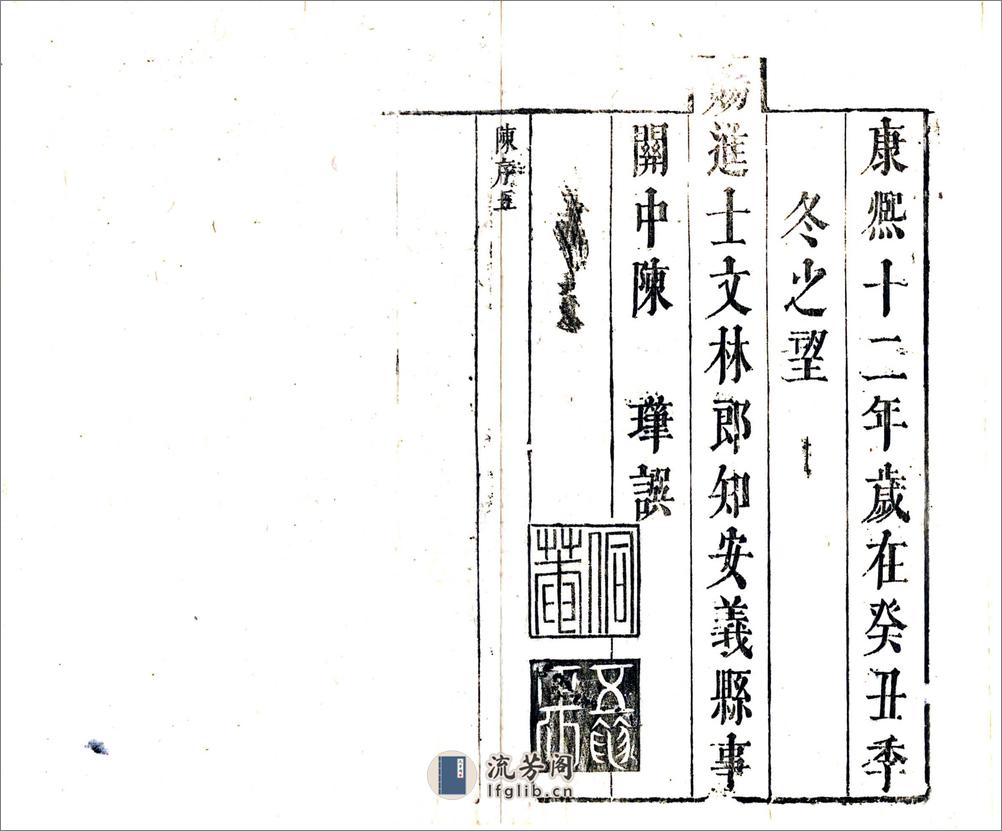 康熙十二年歲在癸丑季
冬之望
賜進士文林郎知安義縣事
關中陳 瑾譔
陳序五
流芳阁
lfglib.cn